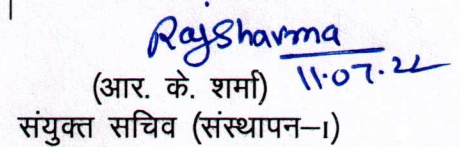 RajSharma
11.07.22
(आर. के. शर्मा)
संयुक्त सचिव (संस्थापन–I)